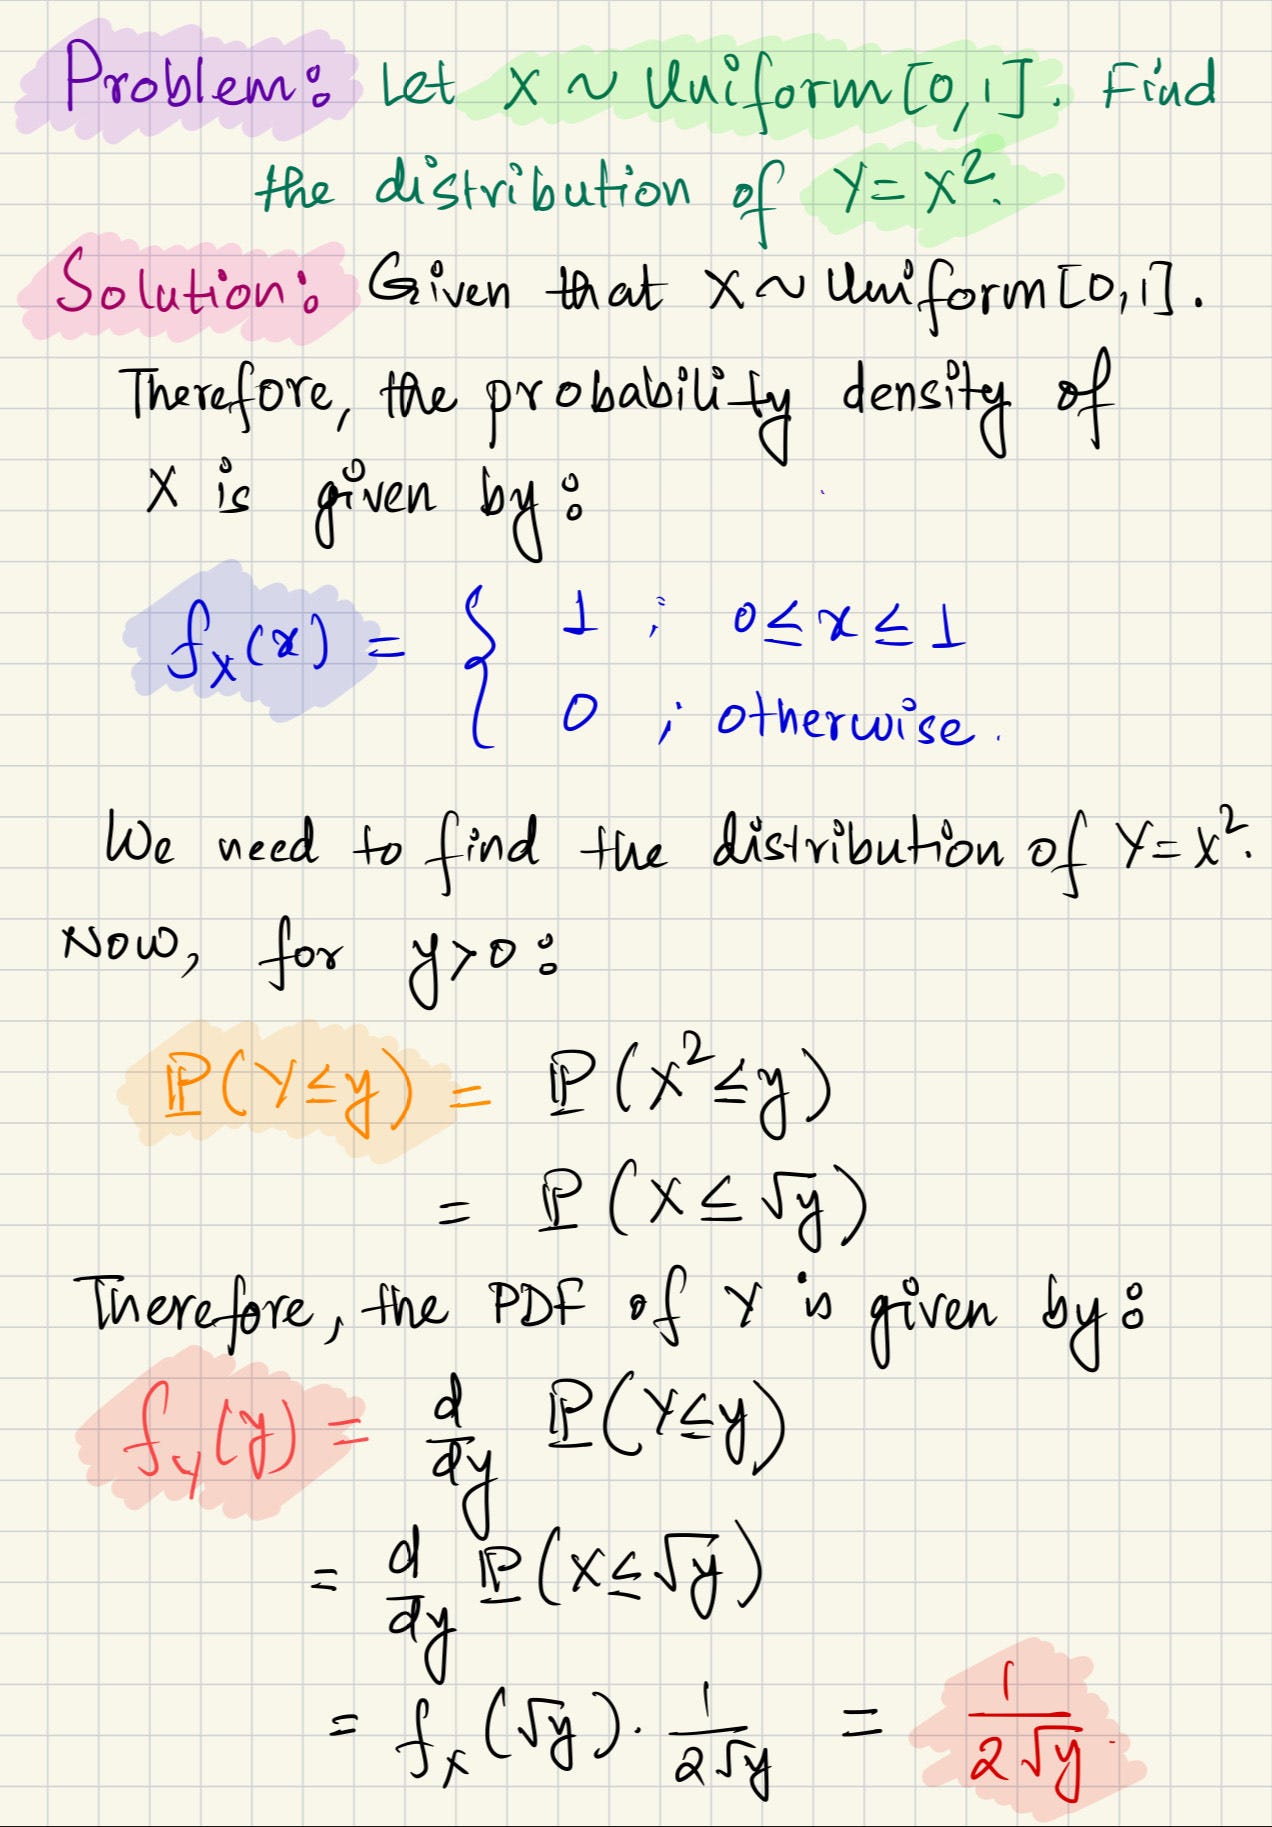 Problem: Let X ~ Uniform[0,1]. Find
the distribution of Y=X².
Solution: Given that X~Uniform[0,1].
Therefore, the probability density of
X is given by:
f_X(x) = { 1 ; 0≤x≤1
0 ; otherwise.
We need to find the distribution of Y=X².
Now, for y>0:
ℙ(Y≤y) = ℙ(X²≤y)
= ℙ(X≤√y)
Therefore, the PDF of Y is given by:
f_Y(y) = d/dy ℙ(Y≤y)
= d/dy ℙ(X≤√y)
= f_X(√y)·1/(2√y) = 1/(2√y).